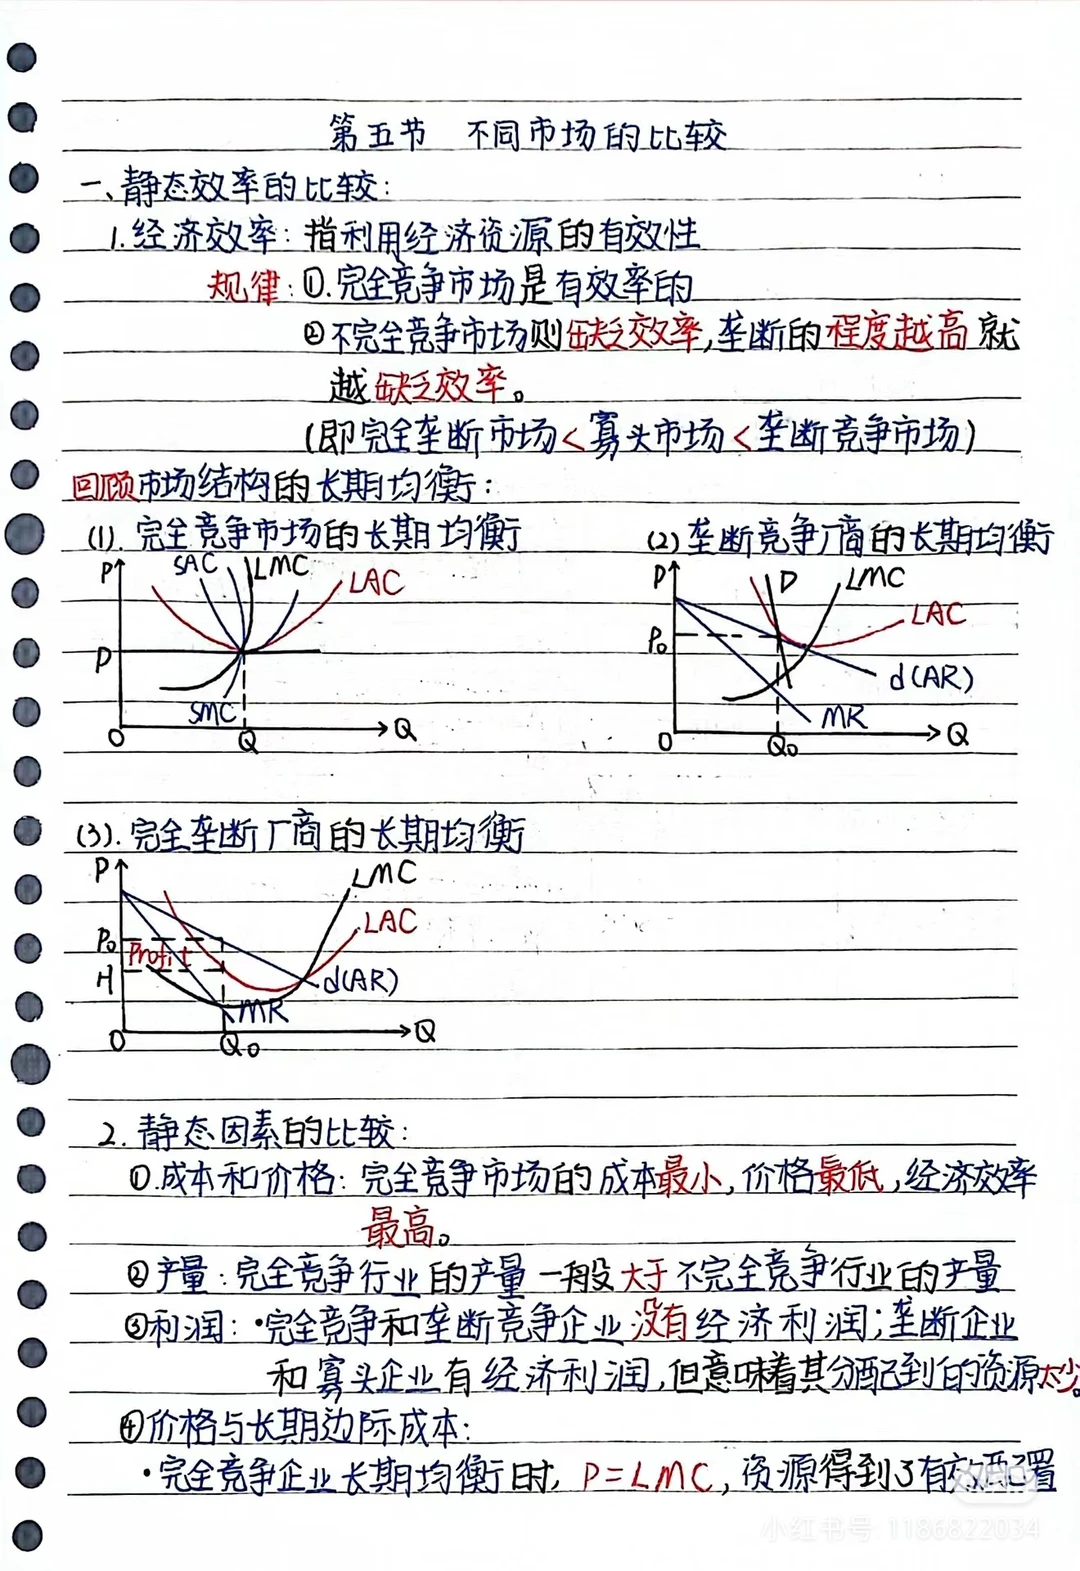 第五节 不同市场的比较
一、静态效率的比较:
1. 经济效率: 指利用经济资源的有效性
规律: ①.完全竞争市场是有效率的
②不完全竞争市场则缺乏效率,垄断的程度越高就
越缺乏效率。
(即完全垄断市场<寡头市场<垄断竞争市场)
回顾市场结构的长期均衡:
(1). 完全竞争市场的长期均衡
(2) 垄断竞争厂商的长期均衡
P SAC LMC LAC
P
SMC
O Q Q
P D LMC
LAC
P₀
d(AR)
MR
O Q₀ Q
(3). 完全垄断厂商的长期均衡
P LMC
LAC
P₀ Profit
H d(AR)
MR
O Q₀ Q
2. 静态因素的比较:
①.成本和价格: 完全竞争市场的成本最小,价格最低,经济效率
最高。
②产量: 完全竞争行业的产量一般大于不完全竞争行业的产量
③利润: ·完全竞争和垄断竞争企业没有经济利润;垄断企业
和寡头企业有经济利润,但意味着其分配到的资源太少。
④价格与长期边际成本:
·完全竞争企业长期均衡时, P=LMC, 资源得到了有效配置
小红书号 1186822034